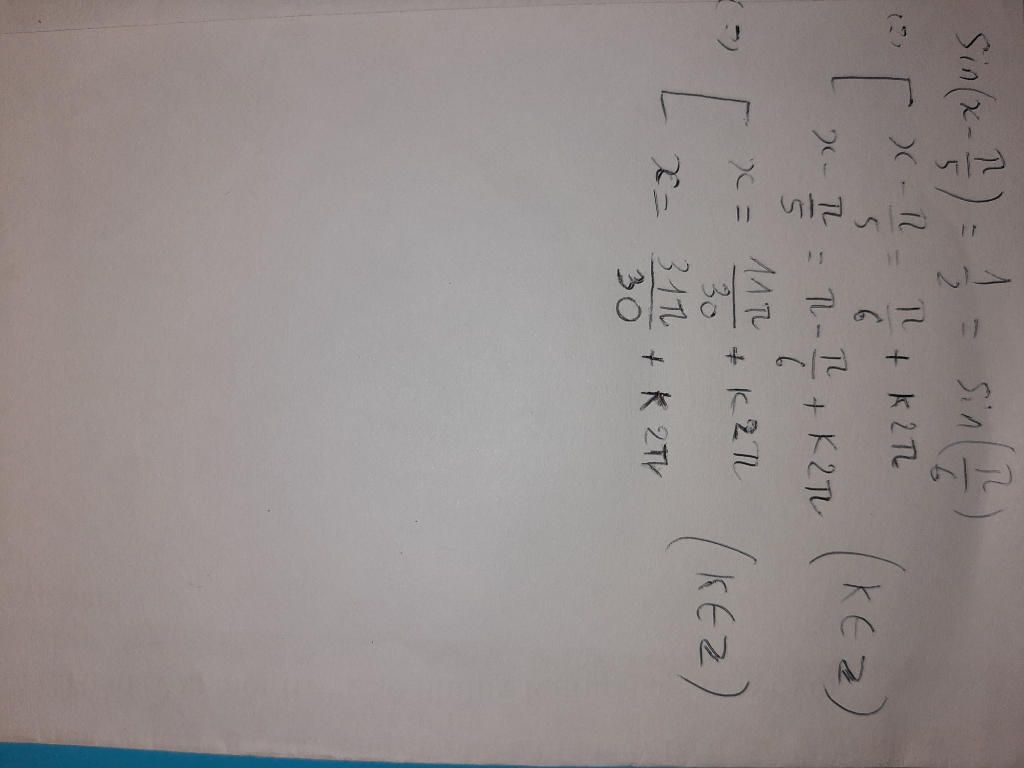 Sin(x - π/5) = 1/2 = Sin(π/6)
(=) [ x - π/5 = π/6 + K2π
x - π/5 = π - π/6 + K2π (K ∈ Z)
(=) [ x = 11π/30 + K2π
x = 31π/30 + K2π (K ∈ Z)